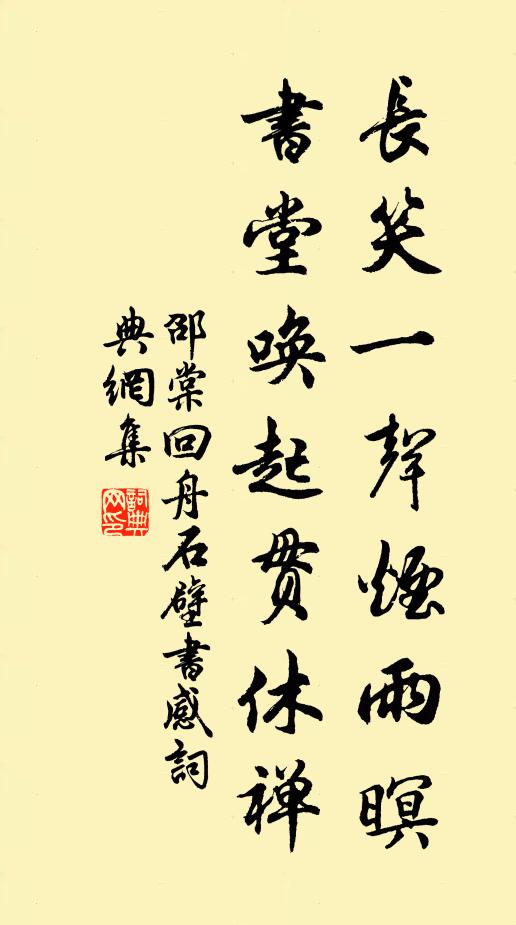 長笑一聲煙雨暝
書堂喚起貫休禅
邵棠回舟石壁書感詞
典網集
詞典
网印